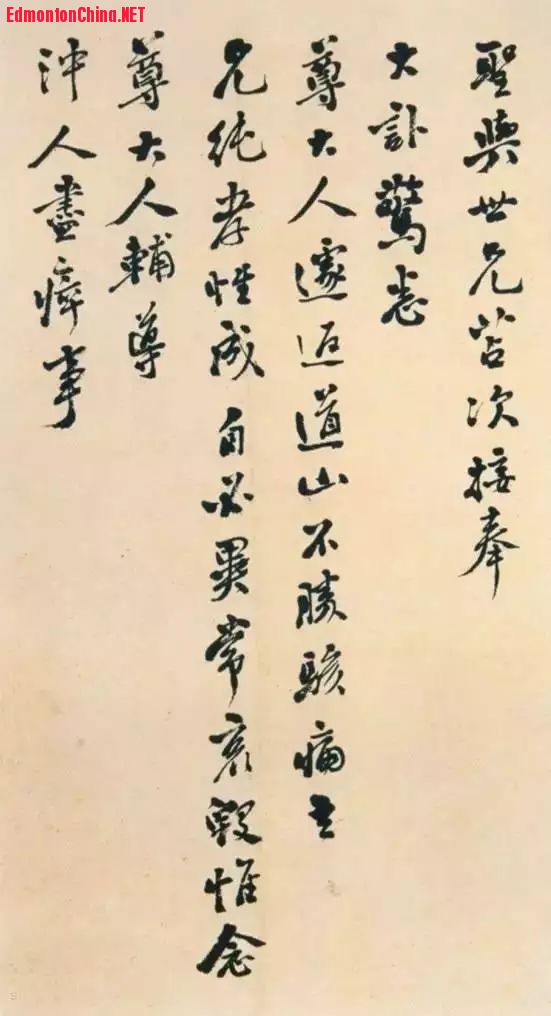 EdmontonChina.NET
聖與世兄苫次接奉
大訃驚悉
尊大人遽返道山不勝駭痛
兄純孝性成自必異常哀毀惟念
尊大人輔導
沖人盡瘁事